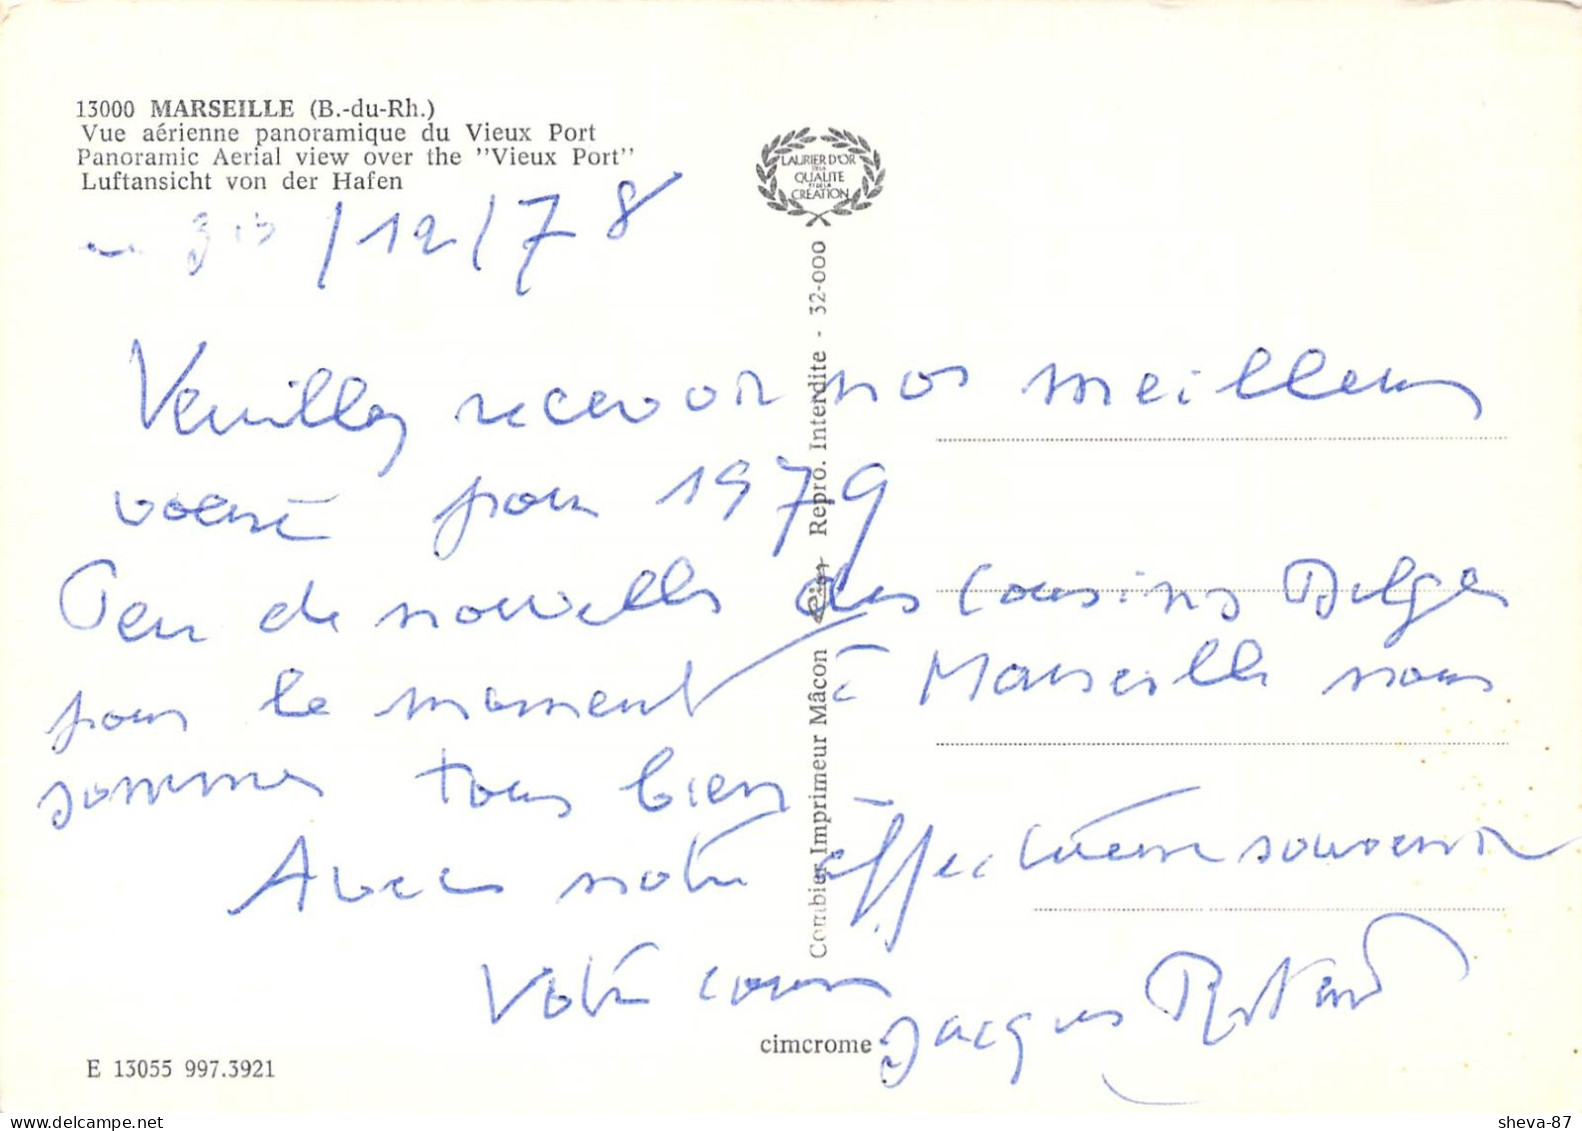 13000 MARSEILLE (B.-du-Rh.)
Vue aérienne panoramique du Vieux Port
Panoramic Aerial view over the "Vieux Port"
Luftansicht von der Hafen
LAURIER D'OR
DE LA
QUALITE
ET DE LA
CREATION
/12/78
Veuillez recevoir nos meilleurs
voeux pour 1979
Peu de nouvelles des cousins Belges
pour le moment à Marseille nous
sommes tous bien
Avec notre affectueux souvenir
Votre cousin
Jacques
Combier Imprimeur Mâcon Repro. Interdite - 32-000
cimcrome
E 13055 997.3921
sheva-87